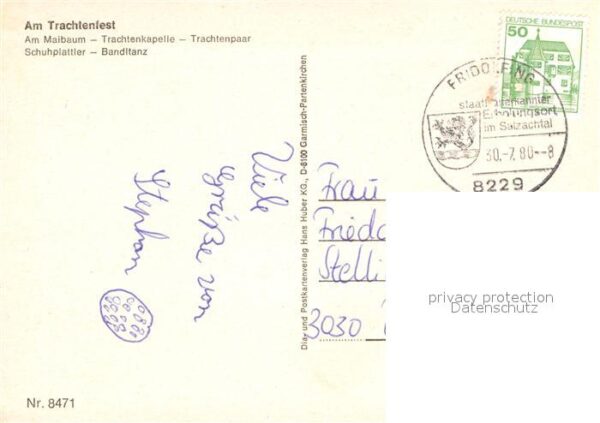 Am Trachtenfest
Am Maibaum – Trachtenkapelle – Trachtenpaar
Schuhplattler – Bandltanz
DEUTSCHE BUNDESPOST
50
FRIDOLFING
staatl. anerkannter
Erholungsort
im Salzachtal
30.-7.80--8
8229
Viele
Grüße von
Stephan
Dia- und Postkartenverlag Hans Huber KG., D-8100 Garmisch-Partenkirchen
Frau
Frieda
Stelli
3030
privacy protection
Datenschutz
Nr. 8471